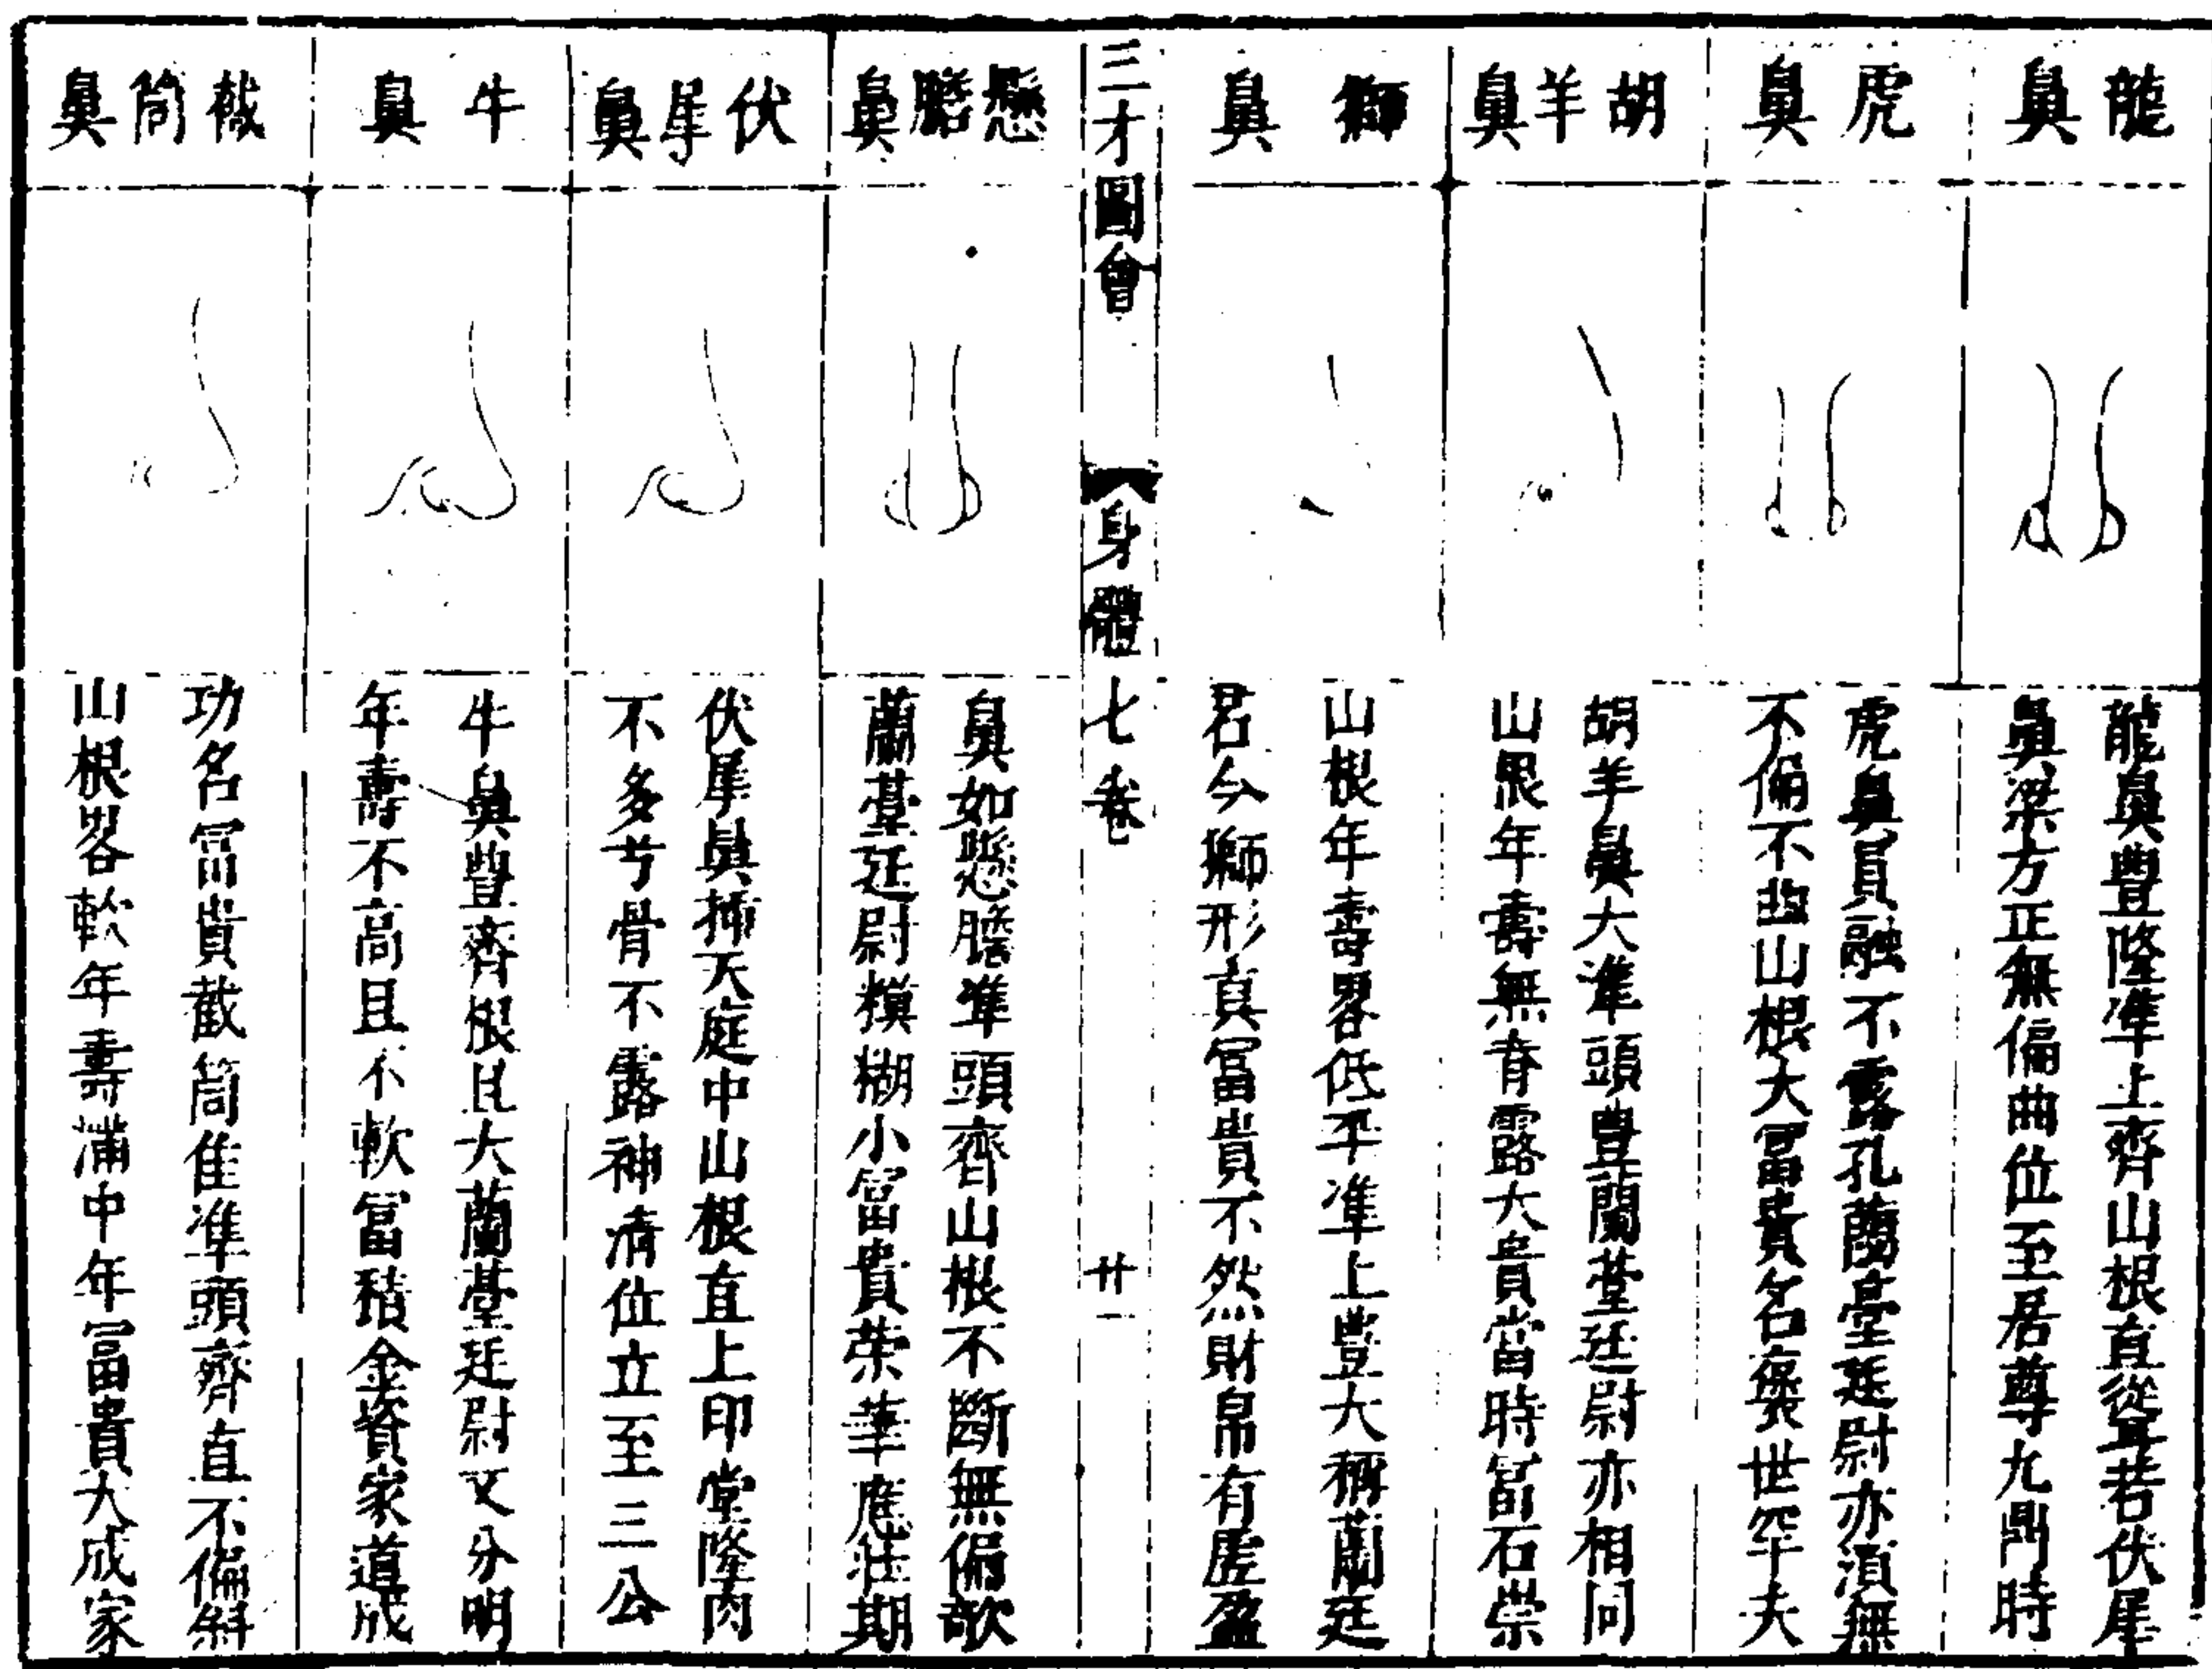 龍鼻
龍鼻豊隆凖上齊山根直聳若伏犀
鼻梁方正無偏曲位至居尊九鼎時
虎鼻
虎鼻員融不露孔蘭臺廷尉亦須無
不偏不曲山根大冨貴名褒世罕夫
胡羊鼻
胡羊鼻大準頭豊蘭臺廷尉亦相同
山根年壽無脊露大貴當時冨石崇
獅鼻
山根年壽畧低平凖上豊大稱蘭廷
若今獅形真冨貴不然財帛有虛盈
三才圖會
身體七卷
廿一
懸膽鼻
鼻如懸膽凖頭齊山根不斷無偏欹
蘭臺廷尉模糊小冨貴榮華應壯期
伏犀鼻
伏犀鼻插天庭中山根直上印堂隆肉
不多兮骨不露神清位立至三公
牛鼻
牛鼻豊齊根且大蘭臺廷尉又分明
年壽不高且不軟冨積金資家道成
截筒鼻
功名冨貴截筒佳凖頭齊直不偏斜
山根畧軟年壽滿中年冨貴大成家